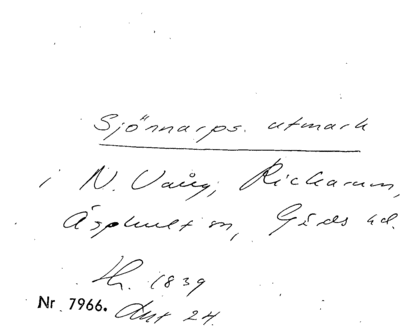 Sjönnarps. utmark
i N. Vång, Rickarum,
Äsphult m, Gärds hd.
Lh. 1839
Nr 7966. Akt 24.